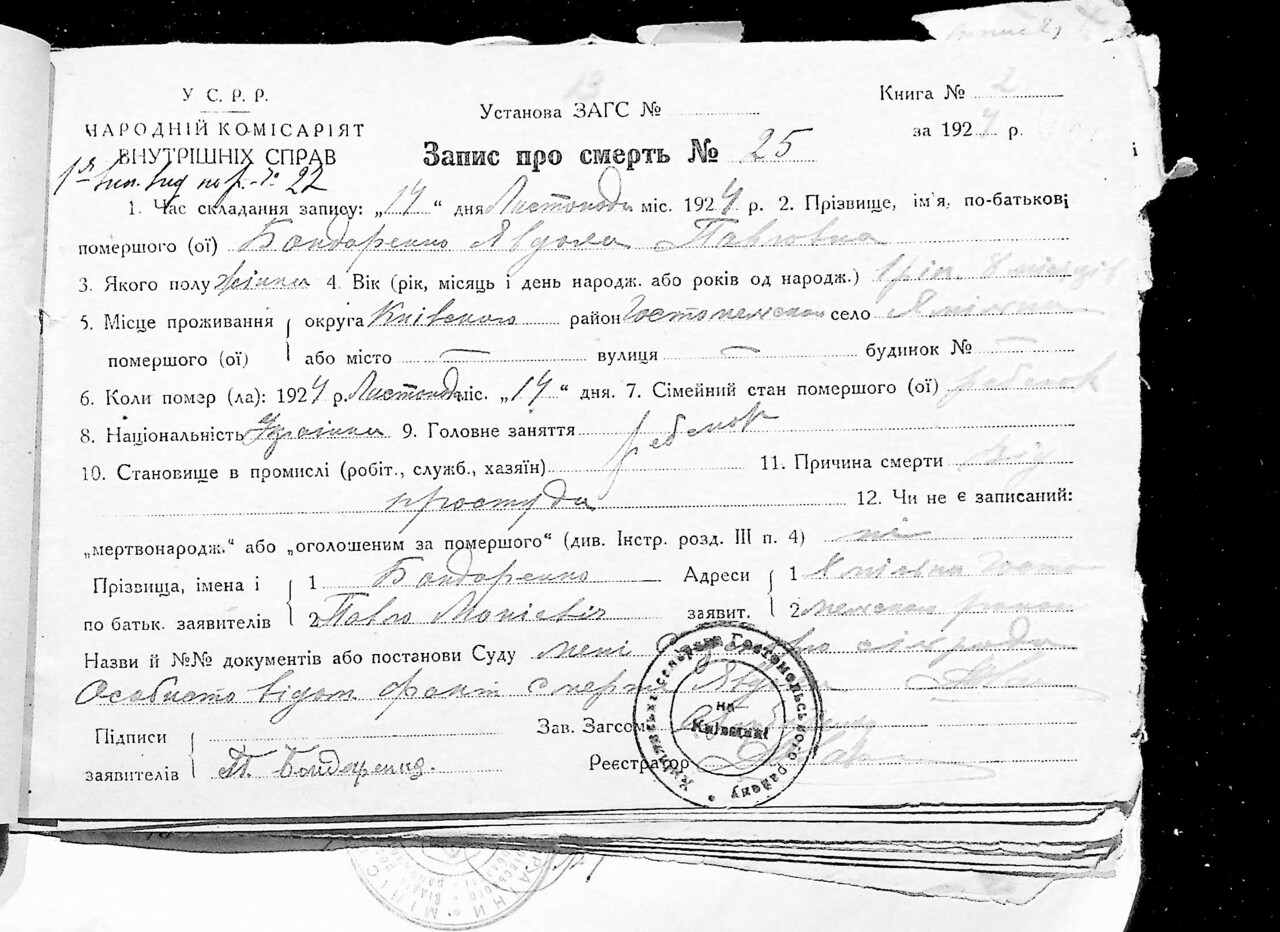 У С. Р. Р.
НАРОДНІЙ КОМІСАРІЯТ
ВНУТРІШНІХ СПРАВ
№ 22
Установа ЗАГС №
Книга № 2
за 1924 р.
Запис про смерть № 25
1. Час складання запису: „14“ дня Листопада міс. 1924 р. 2. Прізвище, ім'я, по-батькові
помершого (ої) Бондаренко Явдоха Павловна
3. Якого полу жінка 4. Вік (рік, місяць і день народж. або років од народж.) 1 рік 8 місяців
5. Місце проживання помершого (ої) округа Київского район Гостомельском село
або місто — вулиця — будинок № —
6. Коли помер (ла): 1924 р. Листопада міс. „14“ дня. 7. Сімейний стан помершого (ої) ребенок
8. Національність Українка 9. Головне заняття ребенок
10. Становище в промислі (робіт., служб., хазяїн) 11. Причина смерти від
простуди 12. Чи не є записаний:
„мертвонародж.“ або „оголошеним за помершого“ (див. Інстр. розд. III п. 4) ні
Прізвища, імена і по батьк. заявителів 1 Бондаренко
2 Павло
Адреси заявит. 1 Госто
2 мельском район
Назви й №№ документів або постанови Суду мені сілради
Особисто відом факт смерти
Підписи заявителів П. Бондаренко.
Зав. Загсом
Реєстратор
Гостомельського району
на Київщині